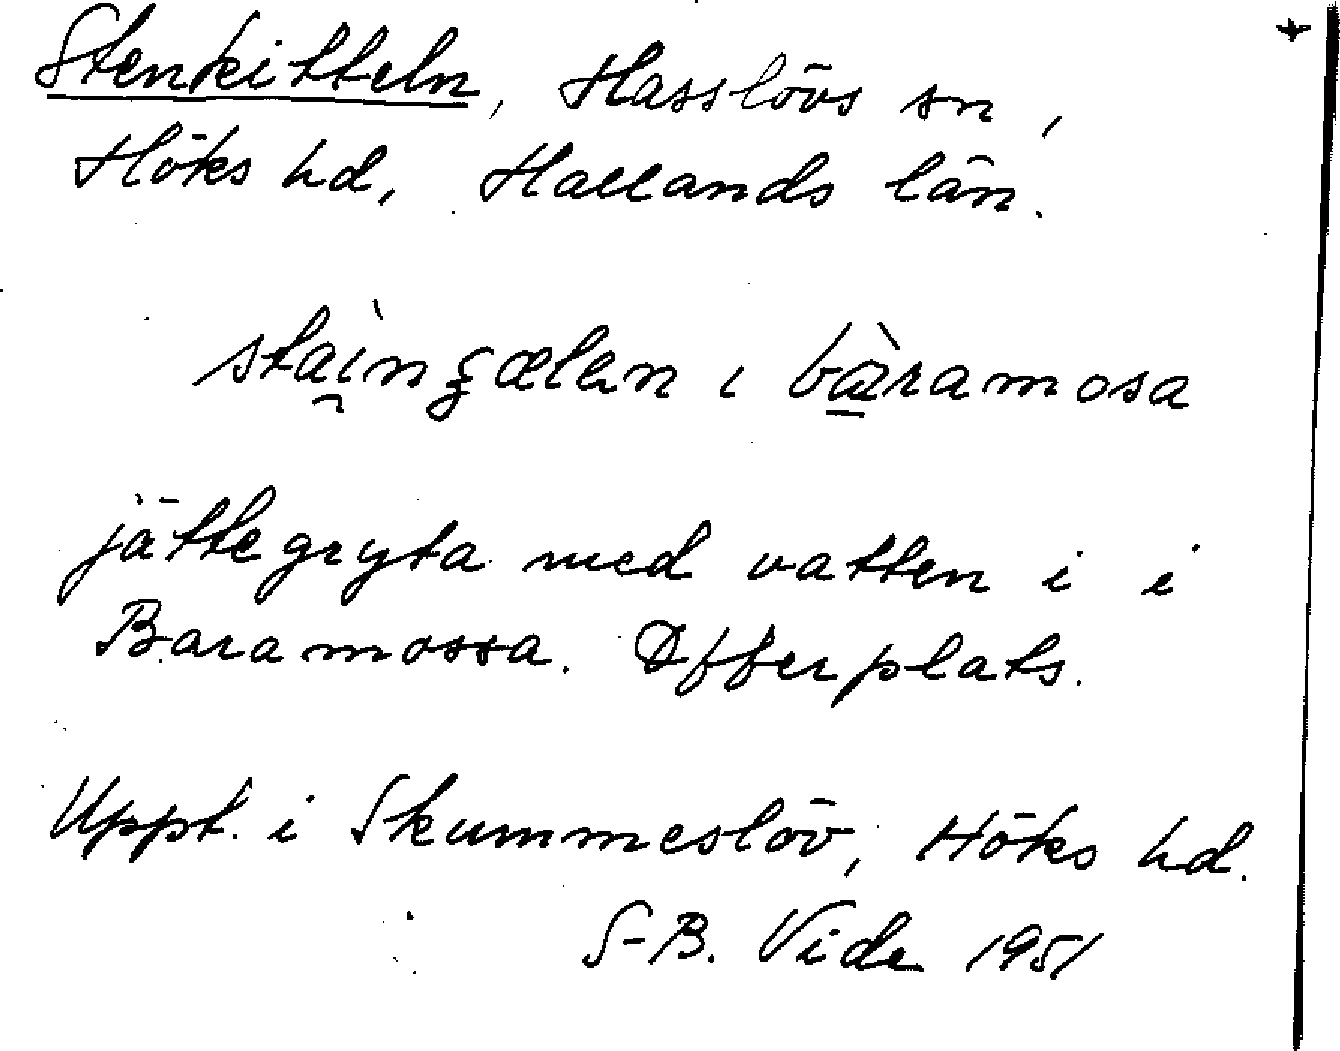 Stenkitteln, Hasslövs sn,
Höks hd, Hallands län.
i bàramosa
jättegryta med vatten i i
Baramossa. Offerplats.
Uppt. i Skummeslöv, Höks hd.
S-B. Vide 1951